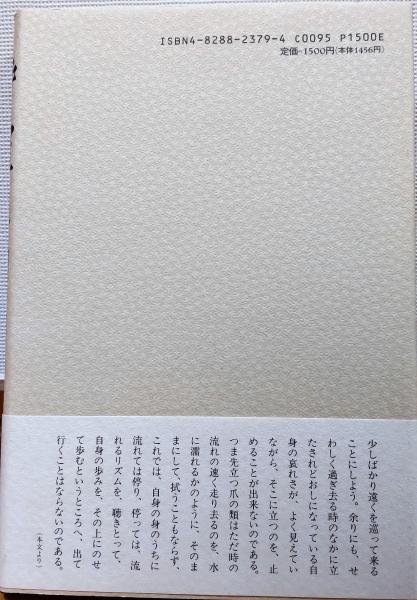 ISBN4-8288-2379-4 C0095 P1500E
定価=1500円(本体1456円)
少しばかり遠くを巡って来る
ことにしよう。余りにも、せ
わしく過ぎ去る時のなかに立
たされどおしになっている自
身の哀れさが、よく見えてい
ながら、そこに立つのを、止
めることが出来ないのである。
つま先立つ爪の類はただ時の
流れの速く走り去るのを、水
に濡れるかのように、そのま
まにして、拭うこともならず、
これでは、自身の身のうちに
流れては停り、停っては、流
れるリズムを、聴きとって、
自身の歩みを、その上にのせ
て歩むというところへ、出て
行くことはならないのである。
(本文より)